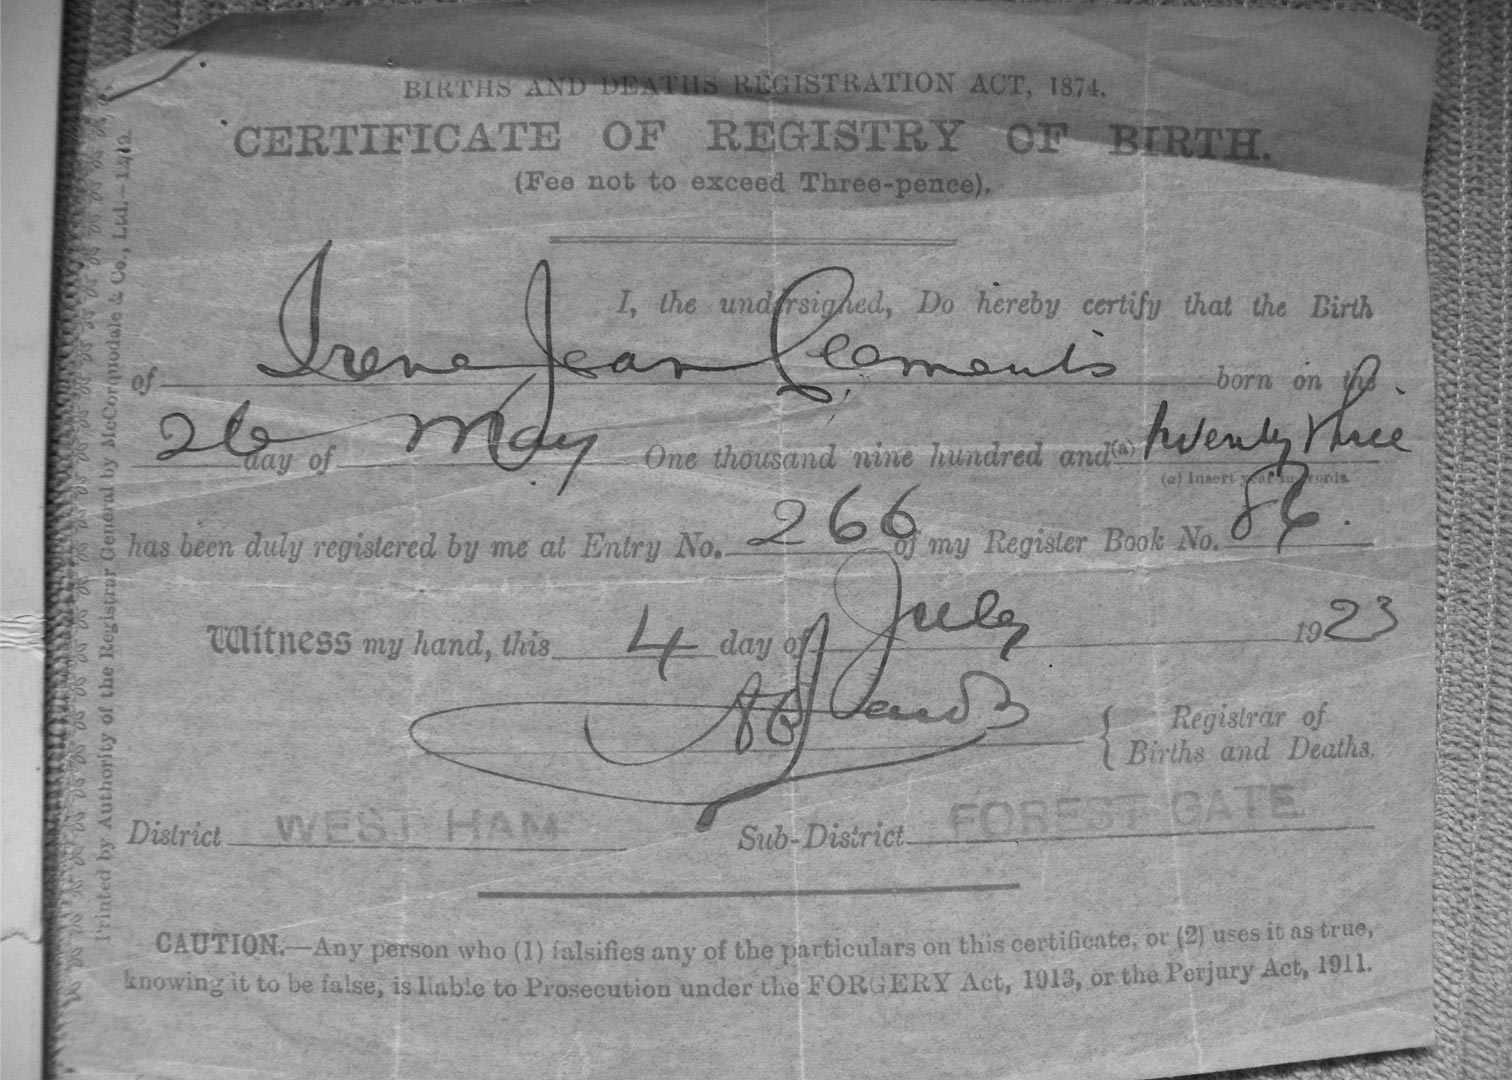 BIRTHS AND DEATHS REGISTRATION ACT, 1874.
CERTIFICATE OF REGISTRY OF BIRTH.
(Fee not to exceed Three-pence).
I, the undersigned, Do hereby certify that the Birth
of Irene Jean Clements born on the
26 day of May One thousand nine hundred and (a) twenty three
(a) Insert year in words.
has been duly registered by me at Entry No. 266 of my Register Book No. 86.
Witness my hand, this 4 day of July 1923
Registrar of
Births and Deaths.
District WEST HAM Sub-District FOREST GATE
CAUTION.—Any person who (1) falsifies any of the particulars on this certificate, or (2) uses it as true,
knowing it to be false, is liable to Prosecution under the FORGERY Act, 1913, or the Perjury Act, 1911.
Printed by Authority of the Registrar General by McCorquodale & Co., Ltd.